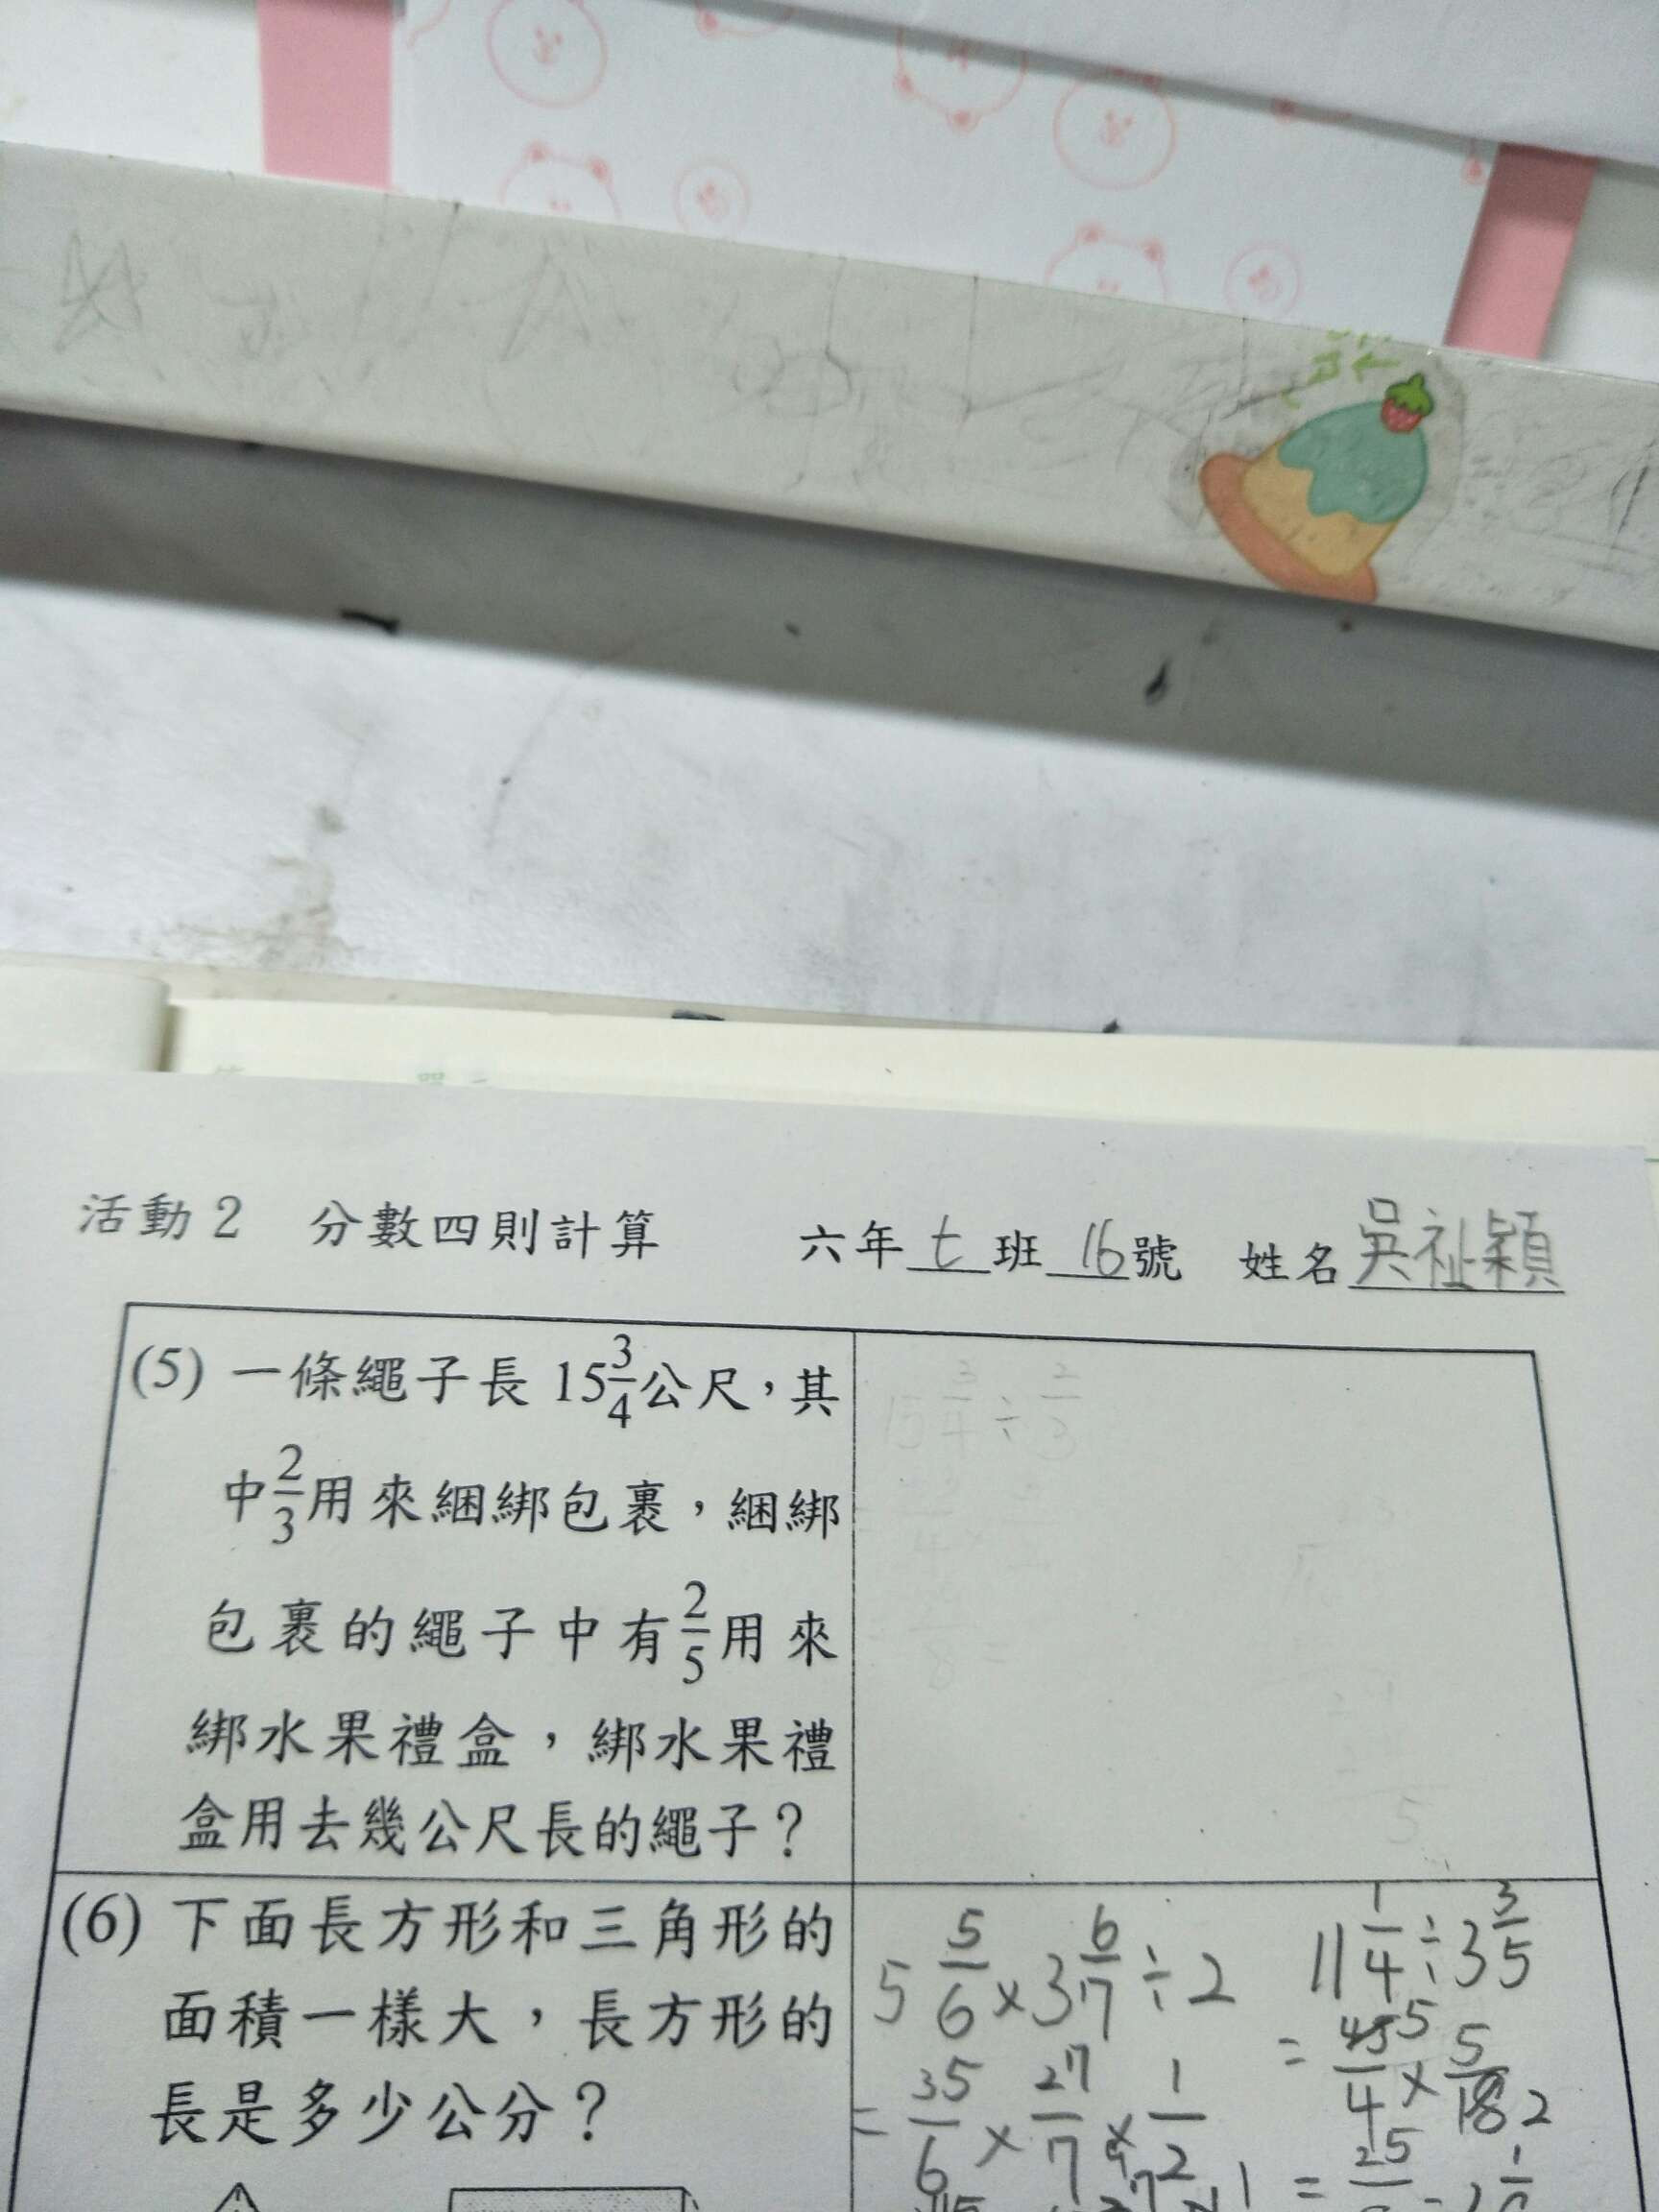 活動2 分數四則計算 六年七班16號 姓名吳祉穎
(5) 一條繩子長 15 3/4 公尺，其
中 2/3 用來綑綁包裹，綑綁
包裹的繩子中有 2/5 用來
綁水果禮盒，綁水果禮
盒用去幾公尺長的繩子？
15 3/4 ÷ 2/3
(6) 下面長方形和三角形的
面積一樣大，長方形的
長是多少公分？
5 5/6 × 3 6/7 ÷ 2
= 35/6 × 27/7 × 1/2
11 1/4 ÷ 3 3/5
= 45/4 × 5/18